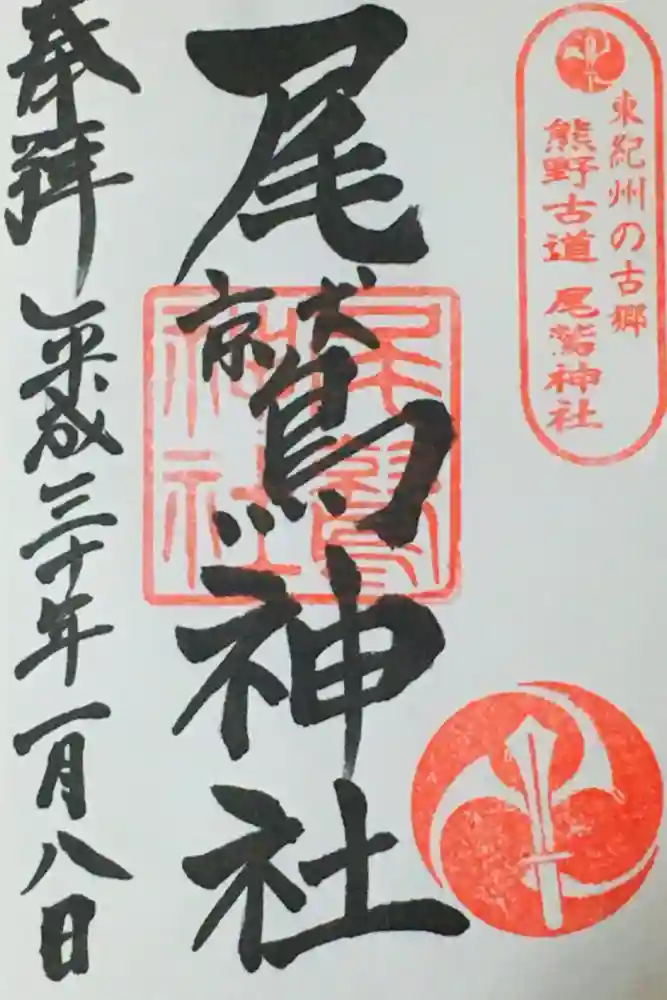 東紀州の古郷
熊野古道 尾鷲神社
尾鷲神社
尾鷲
神社
奉拝 平成三十年一月八日